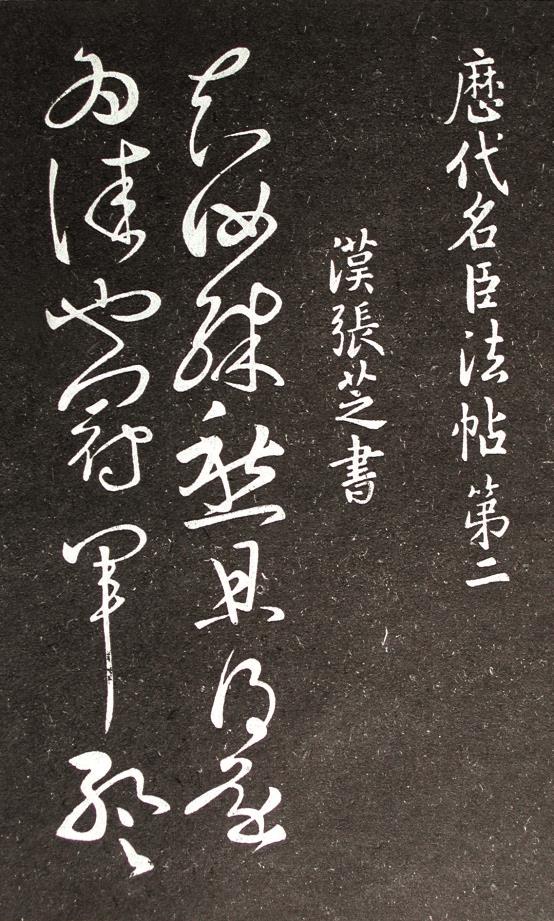 歷代名臣法帖第二
漢張芝書
知汝殊愁且得還
為佳也冠軍暫